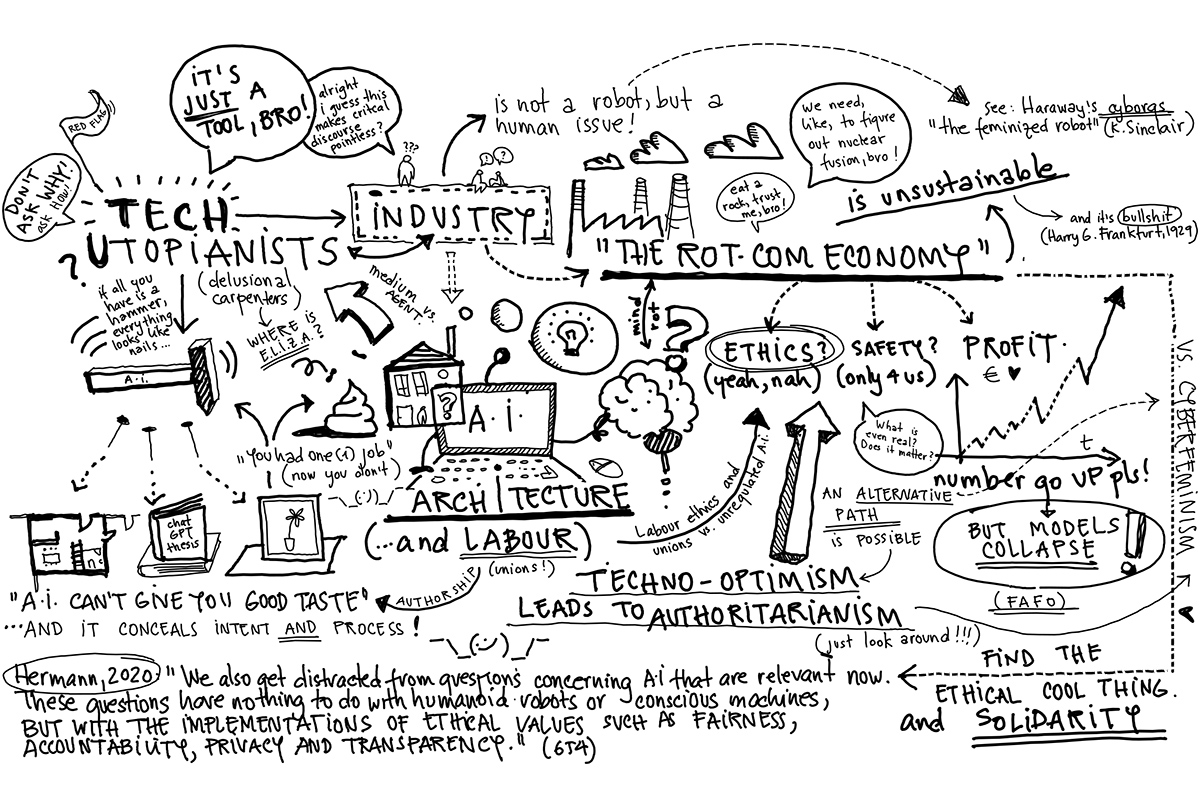 RED FLAG
DON'T
ASK WHY!
ask HOW!
iT'S
JUST A
TOOL, BRO!
alright
i guess this
makes critical
discourse
pointless?
???
! ?
is not a robot, but a
human issue!
we need,
like, to figure
out nuclear
fusion, bro!
see: Haraway's cyborgs
"the feminized robot" (K. Sinclair)
TECH
UTOPIANISTS
?
(delusional
carpenters)
iNDUSTRY
eat a
rock, trust
me, bro!
is unsustainable
and it's bullshit
(Harry G. Frankfurt, 1929)
"THE ROT-COM ECONOMY"
if all you
have is a
hammer,
everything
looks like
nails...
A.i.
WHERE IS
E.L.I.Z.A.?
medium vs.
AGENT.
mind
rot
?
ETHICS?
(yeah, nah)
SAFETY?
(only 4 us)
PROFIT.
€ ♥
What is
even real?
Does it matter?
t
number go UP pls!
VS. CYBERFEMINISM
"You had one (1) job"
(now you don't)
?
A.I.
ARCHITECTURE
(...and LABOUR)
(unions!)
¯\_(ツ)_/¯
Labour ethics and
unions vs. unregulated A.i.
AN ALTERNATIVE
PATH
is POSSIBLE
BUT MODELS
COLLAPSE
!
(FAFO)
chat
GPT
thesis
"A.i. CAN'T GiVE YOU GOOD TASTE"
...AND iT CONCEALS INTENT AND PROCESS!
AUTHORSHIP
TECHNO-OPTIMISM
LEADS TO AUTHORITARIANISM
(just look around!!!)
FiND THE
ETHICAL COOL THING.
and SOLiDARiTY
Hermann, 2020 "We also get distracted from questions concerning A.i that are relevant now.
These questions have nothing to do with humanoid robots or conscious machines,
BUT WITH THE IMPLEMENTATIONS OF ETHICAL VALUES SUCH AS FAIRNESS,
ACCOUNTABILITY, PRIVACY AND TRANSPARENCY." (654)